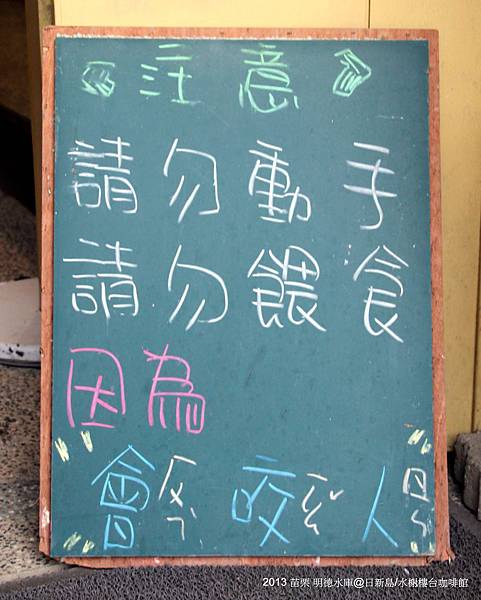 《注意》
請勿動手
請勿餵食
因為
會咬人
2013 苗栗 明德水庫@日新島/水榭樓台咖啡館